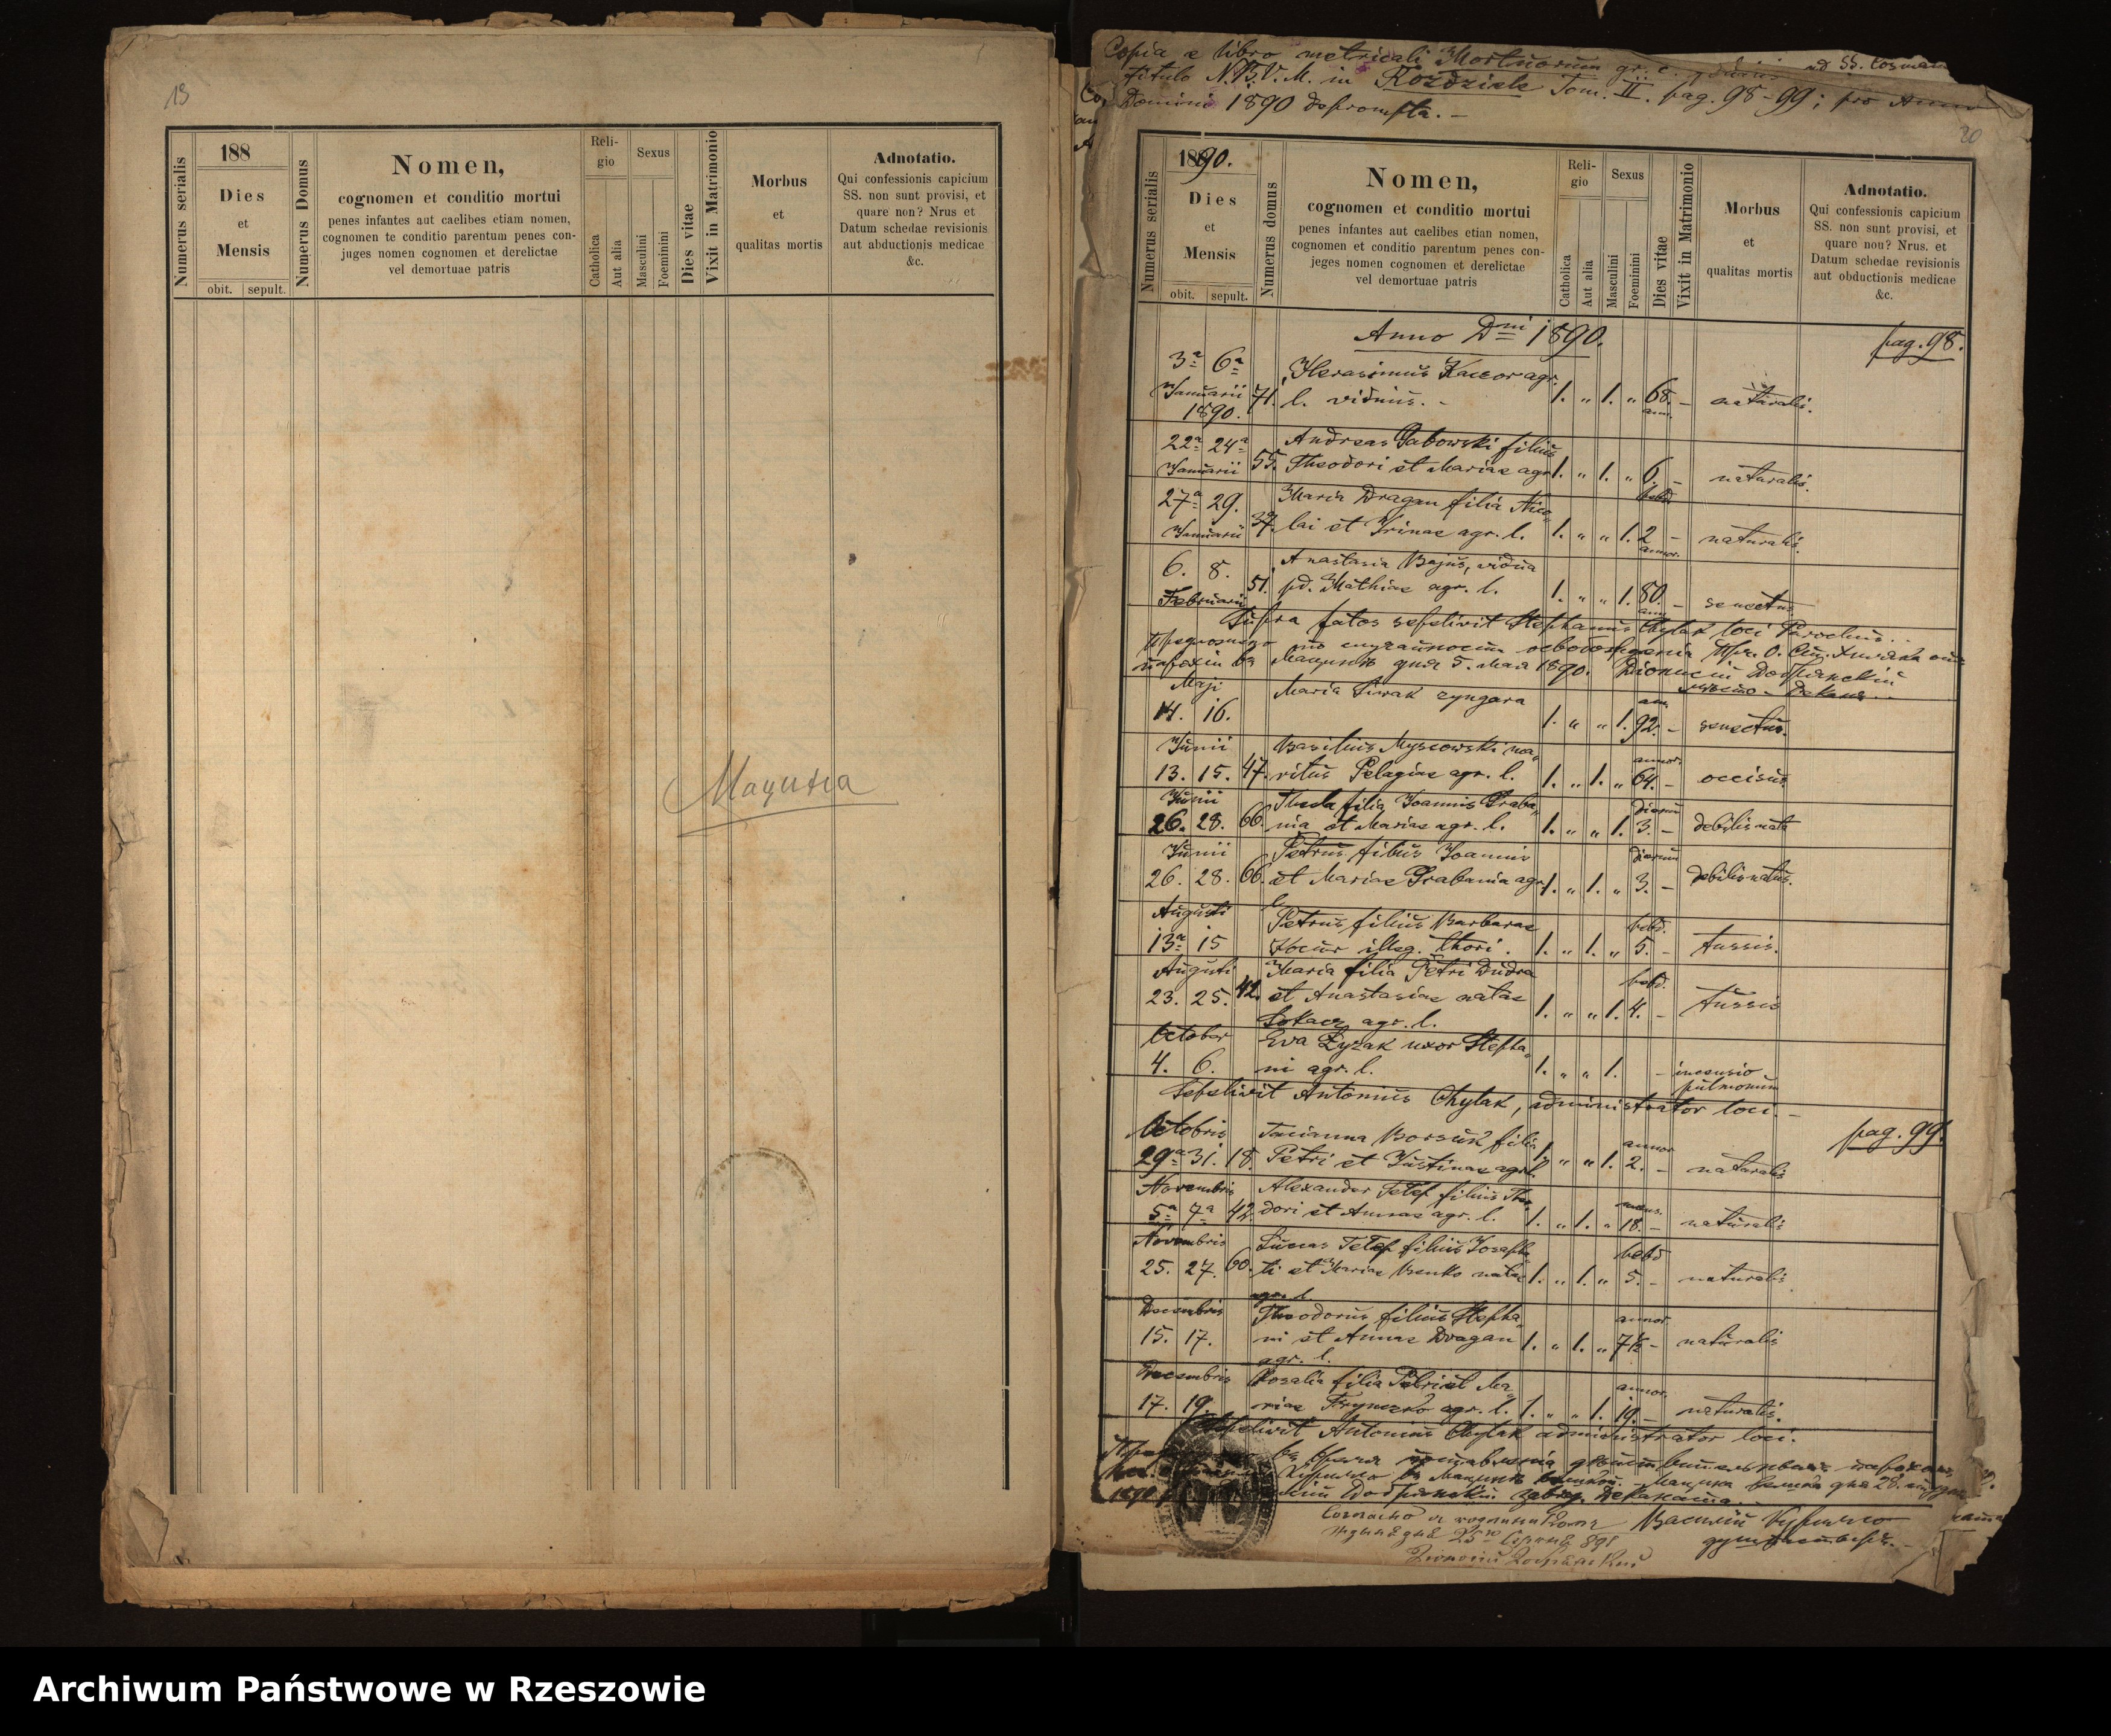 19
Numerus serialis
188
Dies
et
Mensis
obit.
sepult.
Numerus Domus
Nomen,
cognomen et conditio mortui
penes infantes aut caelibes etiam nomen,
cognomen te conditio parentum penes con-
juges nomen cognomen et derelictae
vel demortuae patris
Reli-
gio
Catholica
Aut alia
Sexus
Masculini
Foeminini
Dies vitae
Vixit in Matrimonio
Morbus
et
qualitas mortis
Adnotatio.
Qui confessionis capicium
SS. non sunt provisi, et
quare non? Nrus et
Datum schedae revisionis
aut abductionis medicae
&c.
Мацина
Copia e libro metricali Mortuorum gr. c. ad SS. Cosmam
titulo N.B.V.M. in Rozdziele Tom. II. pag. 98-99; pro Anno
Domini 1890 deprompta. -
20
Numerus serialis
1890.
Dies
et
Mensis
obit.
sepult.
Numerus domus
Nomen,
cognomen et conditio mortui
penes infantes aut caelibes etian nomen,
cognomen et conditio parentum penes con-
jeges nomen cognomen et derelictae
vel demortuae patris
Reli-
gio
Catholica
Aut alia
Sexus
Masculini
Foeminini
Dies vitae
Vixit in Matrimonio
Morbus
et
qualitas mortis
Adnotatio.
Qui confessionis capicium
SS. non sunt provisi, et
quare nou? Nrus. et
Datum schedae revisionis
aut obductionis medicae
&c.
Anno Dni 1890. pag. 98.
3a 6a Herasimus Kaczor agr.
Januarii 71. l. viduus. - 1. " 1. " 68. - naturalis.
1890. ann.
22a 24a Andreas Gabowski filius
Januarii 55. Theodori et Mariae agr. 1. " 1. " 6. - naturalis.
hebd.
27a 29. Maria Dragan filia Nico-
Januarii 37. lai et Irinae agr. l. 1. " " 1. 2 - naturalis.
annor.
6. 8. Anastasia Bajus, vidua
Februarii 51. pd. Mathiae agr. l. 1. " " 1. 80. - senectus
ann.
Supra fatos sepelivit Stephanus Chylak loci Parochus.
Мацинѣ дня 5. Мая 1890. Діонисій
Maji Maria Siwak zyngara ann.
14. 16. 1. " " 1. 92. - senectus.
Junii Basilius Myscowski ma- annor.
13. 15. 47. ritus Pelagiae agr. l. 1. " 1. " 64. - occisus.
Junii Thecla filia Joannis Graba- dierum
26. 28. 66. nia et Mariae agr. l. 1. " " 1. 3. - debilis nata
Junii Petrus filius Joannis dierum
26. 28. 66. et Mariae Grabania agr. 1. " 1. " 3. - debilis natus.
l.
Augusti Petrus filius Barbarae hebd.
13a 15 Kocur illeg. thori. 1. " 1. " 5. - tussis.
Augusti Maria filia Petri Dudra hebd.
23. 25. 42. et Anastasiae natae 1. " " 1. 4. - tussis
agr. l.
October Eva Zyzak uxor Stepha-
4. 6. ni agr. l. 1. " " 1. - incensio
pulmonum
Sepelivit Antonius Chylak, administrator loci. -
pag. 99.
Octobris Tacianna Borsuk filia annor
29a 31. 18. Petri et Justinae agr. l. 1. " " 1. 2. - naturalis
Novembris Alexander Telep filius Theo- mens.
5a 7a 42. dori et Annae agr. l. 1. " 1. " 18. - naturalis
Novembris Lucas Telep filius Josepha- hebd
25. 27. 60. ti et Mariae Benko natae 1. " 1. " 5. - naturalis
agr. l.
Decembris Theodorus filius Stepha- annor
15. 17. ni et Annae Dragan 1. " 1. " 7½ - naturalis
agr. l.
Decembris Rosalia filia Petri et Ma- annor.
17. 19. riae Fryncko agr. l. 1. " " 1. 19. - naturalis.
Sepelivit Antonius Chylak administrator loci.
Василій
Archiwum Państwowe w Rzeszowie